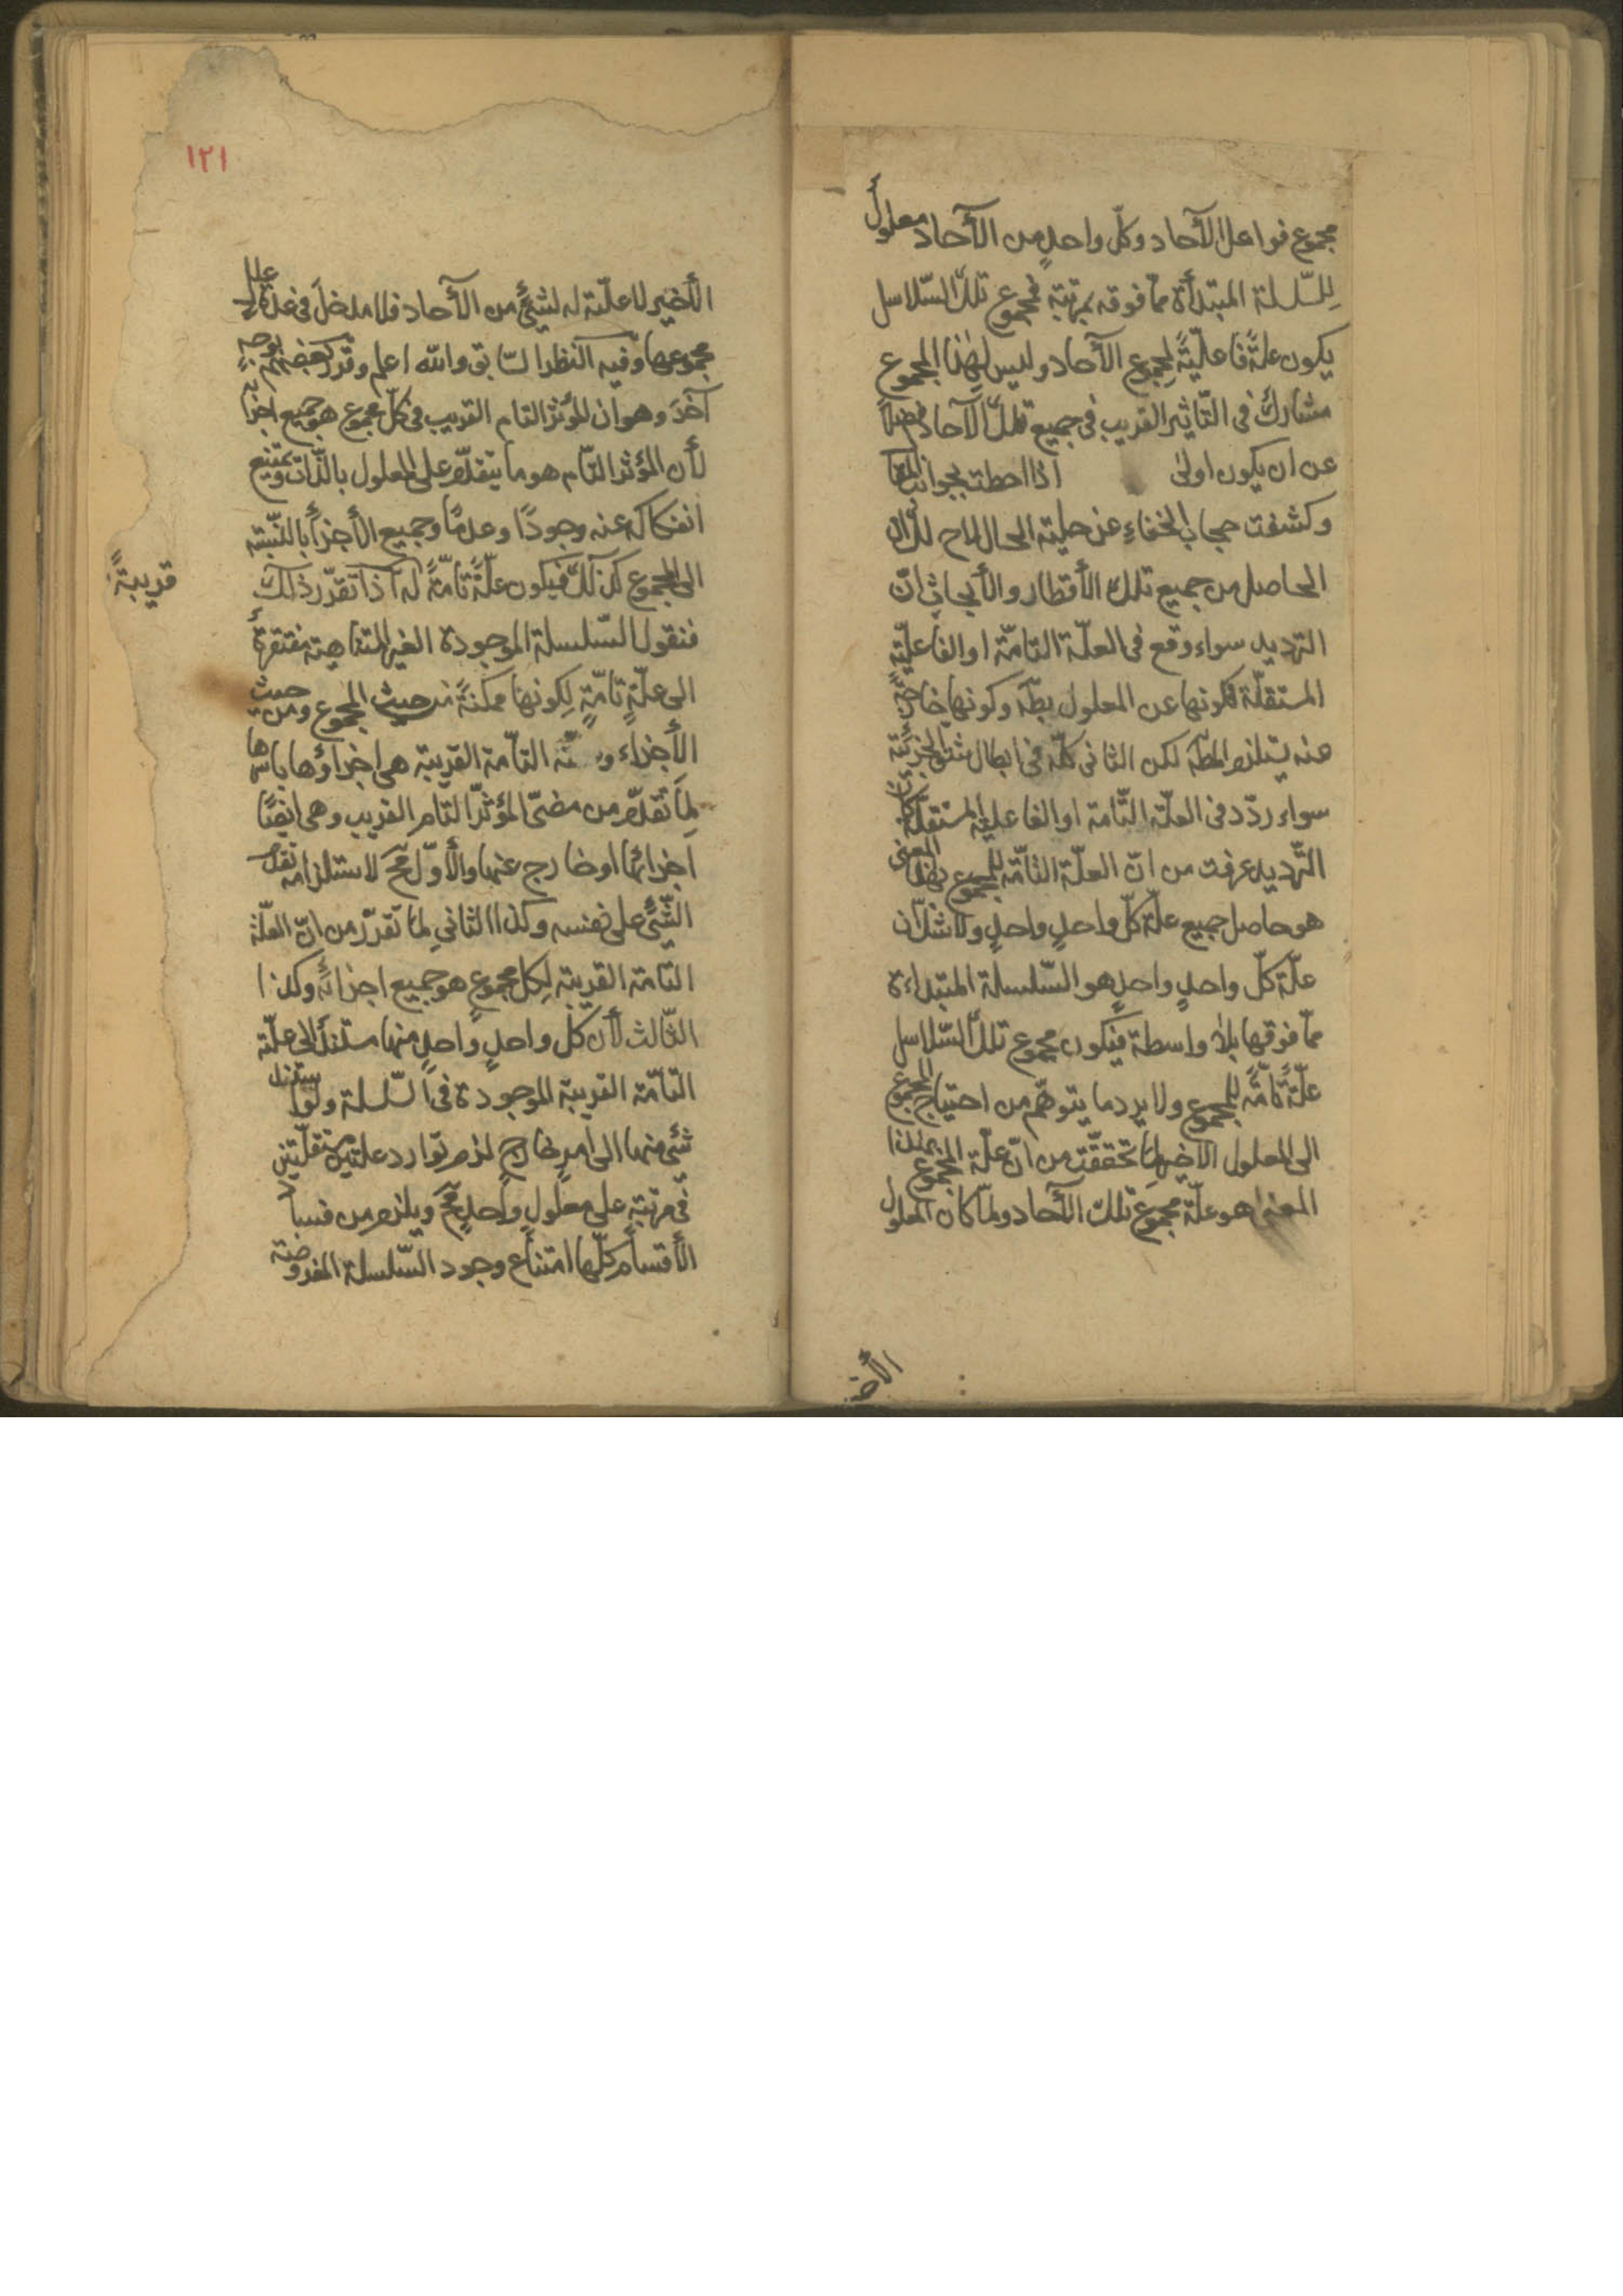 مجموع فواعل الآحاد وكلّ واحدٍ من الآحاد معلولٌ
لِلسّلسلة المبتدأة ممّا فوقه بمرتبة فمجموع تلك السّلاسل
يكون علّةً فاعليّةً لمجموع الآحاد وليس لهٰذا المجموع
مشارك فى التّاثير القريب فى جميع تلك الآحاد فضلاً
عن ان يكون اولىٰ اذا احطت بجوانب
وكشفت حجاب الخفاءِ عن حلية الحال لاح لك ان
الحاصل من جميع تلك الأقطار والأبحاث انّ
التّرديد سواء وقع فى العلّة التامّة او الفاعليّة
المستقلّة فكونها عين المعلول بطّ وكونها خارجةً
عنه يستلزم المطّ لكن الثانى كلّه فى ابطال شقّ الجزئيّة
سواء ردّد فى العلّة التّامة او الفاعلية المستقلّة
التّرديد عرفت من انّ العلّة التّامّة للمجموع بهٰذا المعنى
هو حاصل جميع علّة كلّ واحدٍ واحدٍ ولا شكّ ان
علّة كلّ واحدٍ واحدٍ هو السّلسلة المبتداءة
ممّا فوقها بلا واسطة فيكون مجموع تلك السّلاسل
علّةً تامّةً للمجموع ولا يرد ما يتوهّم من احتياج المجموع
الى المعلول الاخير لِمَا تحقّقت من انّ علّة المجموع بهٰذا
المعنى هو علّة مجموع تلك الآحاد ولمّا كان المعلول
الأخـ
١٢١
الأخير لا علّية له لشيئٍ من الآحاد فلا مدخلَ فى علّة
مجموعها وفيه النظر السّابق والله اعلم وقرّر بعضهم بوجهٍ
آخَرَ وهو ان المؤثر التام القريب فى كلّ مجموع هو جميع اجزائه
لأن المؤثر التام هو ما يتقدّم على المعلول بالذّات ويمتنع
انفكاكه عنه وجودًا وعدمًا وجميع الأجزاء بالنّسبة
الى المجموع كذلك فيكون علّةً تامّةً له اذا تقرّر ذلك
قريبةً
فنقول السّلسلة الموجودة الغير المتناهية مفتقرةٌ
الى علّةٍ تامّةٍ لِكونها ممكنةً من حيث المجموع ومن حيث
الأجزاء التامّة القريبة هى اجزاؤها باسرها
لِمَا تقدّم من معنى المؤثر التام القريب وهى ايضًا
اجزائها او خارج عنها والأوّل محّ لاستلزامه تقدّم
الشّيئ على نفسه وكذا الثانى لِمَا تقرّر من انّ العلّة
التامة القريبة لِكل مجموعٍ هو جميع اجزائه وكذا
الثّالث لأن كلّ واحدٍ واحدٍ منها مستندٌ الى علّته
التامّة القريبة الموجودة فى السّلسلة ولو استند
شئ منها الى امرٍ خارجٍ لزم توارد علّتين مستقلّتين
فى مرتبةٍ على معلولٍ واحدٍ محّ ويلزم من فساد
الأقسام كلّها امتناع وجود السّلسلة المفروضة